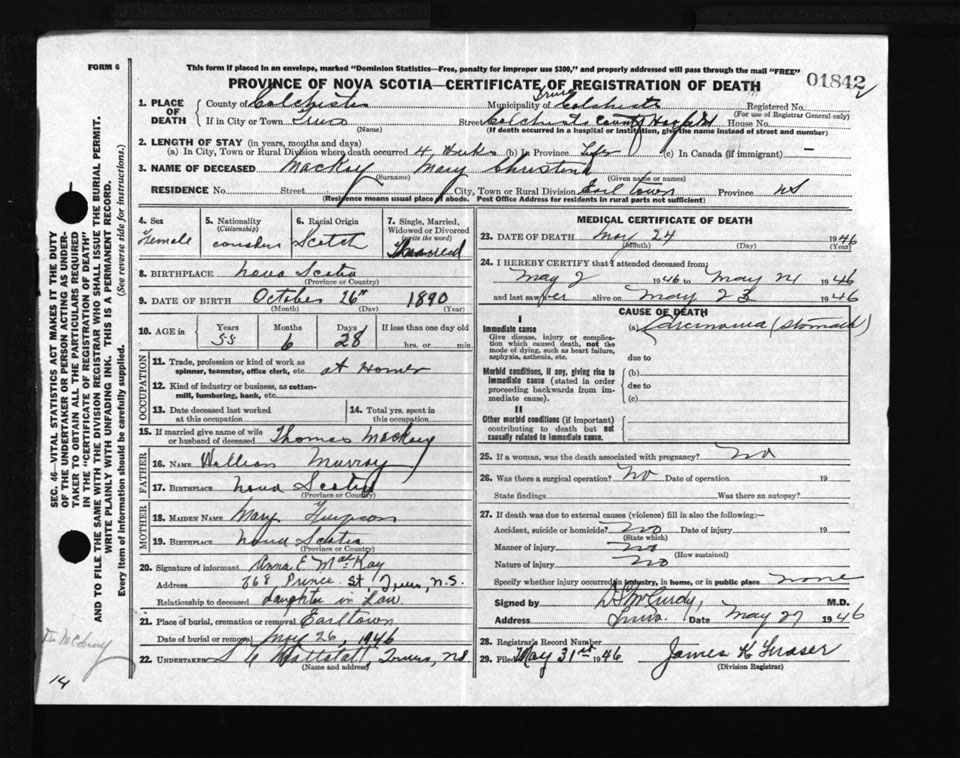 FORM 6
This form if placed in an envelope, marked "Dominion Statistics—Free, penalty for improper use $300," and properly addressed will pass through the mail "FREE"
PROVINCE OF NOVA SCOTIA—CERTIFICATE OF REGISTRATION OF DEATH
01842
1. PLACE OF DEATH
County of Colchester Municipality of Colchester Registered No.
(For use of Registrar General only)
If in City or Town Truro Street Colchester County Hospital House No.
(Name) (If death occurred in a hospital or institution, give the name instead of street and number)
2. LENGTH OF STAY (in years, months and days)
(a) In City, Town or Rural Division where death occurred 4 Weeks (b) In Province Life (c) In Canada (if immigrant) —
3. NAME OF DECEASED MacKay Mary Christina
(Surname) (Given name or names)
RESIDENCE No. Street City, Town or Rural Division Earltown Province NS
(Residence means usual place of abode. Post Office Address for residents in rural parts not sufficient)
4. Sex Female
5. Nationality (Citizenship) Canadian
6. Racial Origin Scotch
7. Single, Married, Widowed or Divorced (write the word)
8. BIRTHPLACE Nova Scotia
(Province or Country)
9. DATE OF BIRTH October 26th 1890
(Month) (Day) (Year)
10. AGE in Years 55 Months 6 Days 28 If less than one day old hrs. or min.
OCCUPATION
11. Trade, profession or kind of work as spinner, teamster, office clerk, etc. at Home
12. Kind of industry or business, as cotton-mill, lumbering, bank, etc.
13. Date deceased last worked at this occupation
14. Total yrs. spent in this occupation
15. If married give name of wife or husband of deceased Thomas MacKay
FATHER
16. NAME William Murray
17. BIRTHPLACE Nova Scotia
(Province or Country)
MOTHER
18. MAIDEN NAME Mary
19. BIRTHPLACE Nova Scotia
(Province or Country)
20. Signature of informant Anna E MacKay
Address 368 Prince St Truro, N.S.
Relationship to deceased daughter in Law
21. Place of burial, cremation or removal Earltown
Date of burial or removal May 26, 1946
22. UNDERTAKER Truro, NS
(Name and address)
MEDICAL CERTIFICATE OF DEATH
23. DATE OF DEATH May 24 1946
(Month) (Day) (Year)
24. I HEREBY CERTIFY that I attended deceased from
May 2 1946 to May 24 1946
and last saw her alive on May 23 1946
CAUSE OF DEATH
I
Immediate cause
Give disease, injury or complication which caused death, not the mode of dying, such as heart failure, asphyxia, asthenia, etc.
(a) Carcinoma (stomach)
due to
Morbid conditions, if any, giving rise to immediate cause (stated in order proceeding backwards from immediate cause).
(b)
due to
(c)
II
Other morbid conditions (if important) contributing to death but not causally related to immediate cause.
25. If a woman, was the death associated with pregnancy? No
26. Was there a surgical operation? No Date of operation 19
State findings Was there an autopsy?
27. If death was due to external causes (violence) fill in also the following:—
Accident, suicide or homicide? No Date of injury 19
(State which)
Manner of injury No
(How sustained)
Nature of injury No
Specify whether injury occurred in industry, in home, or in public place none
Signed by D S McCurdy, M.D.
Address Truro. Date May 27 1946
28. Registrar's Record Number
29. Filed May 31st 1946 James K Fraser
(Division Registrar)
SEC. 46—VITAL STATISTICS ACT MAKES IT THE DUTY
OF THE UNDERTAKER OR PERSON ACTING AS UNDER-
TAKER TO OBTAIN ALL THE PARTICULARS REQUIRED
IN THE "CERTIFICATE OF REGISTRATION OF DEATH"
AND TO FILE THE SAME WITH THE DIVISION REGISTRAR WHO SHALL ISSUE THE BURIAL PERMIT.
WRITE PLAINLY WITH UNFADING INK. THIS IS A PERMANENT RECORD.
Every item of information should be carefully supplied. (See reverse side for instructions.)
14